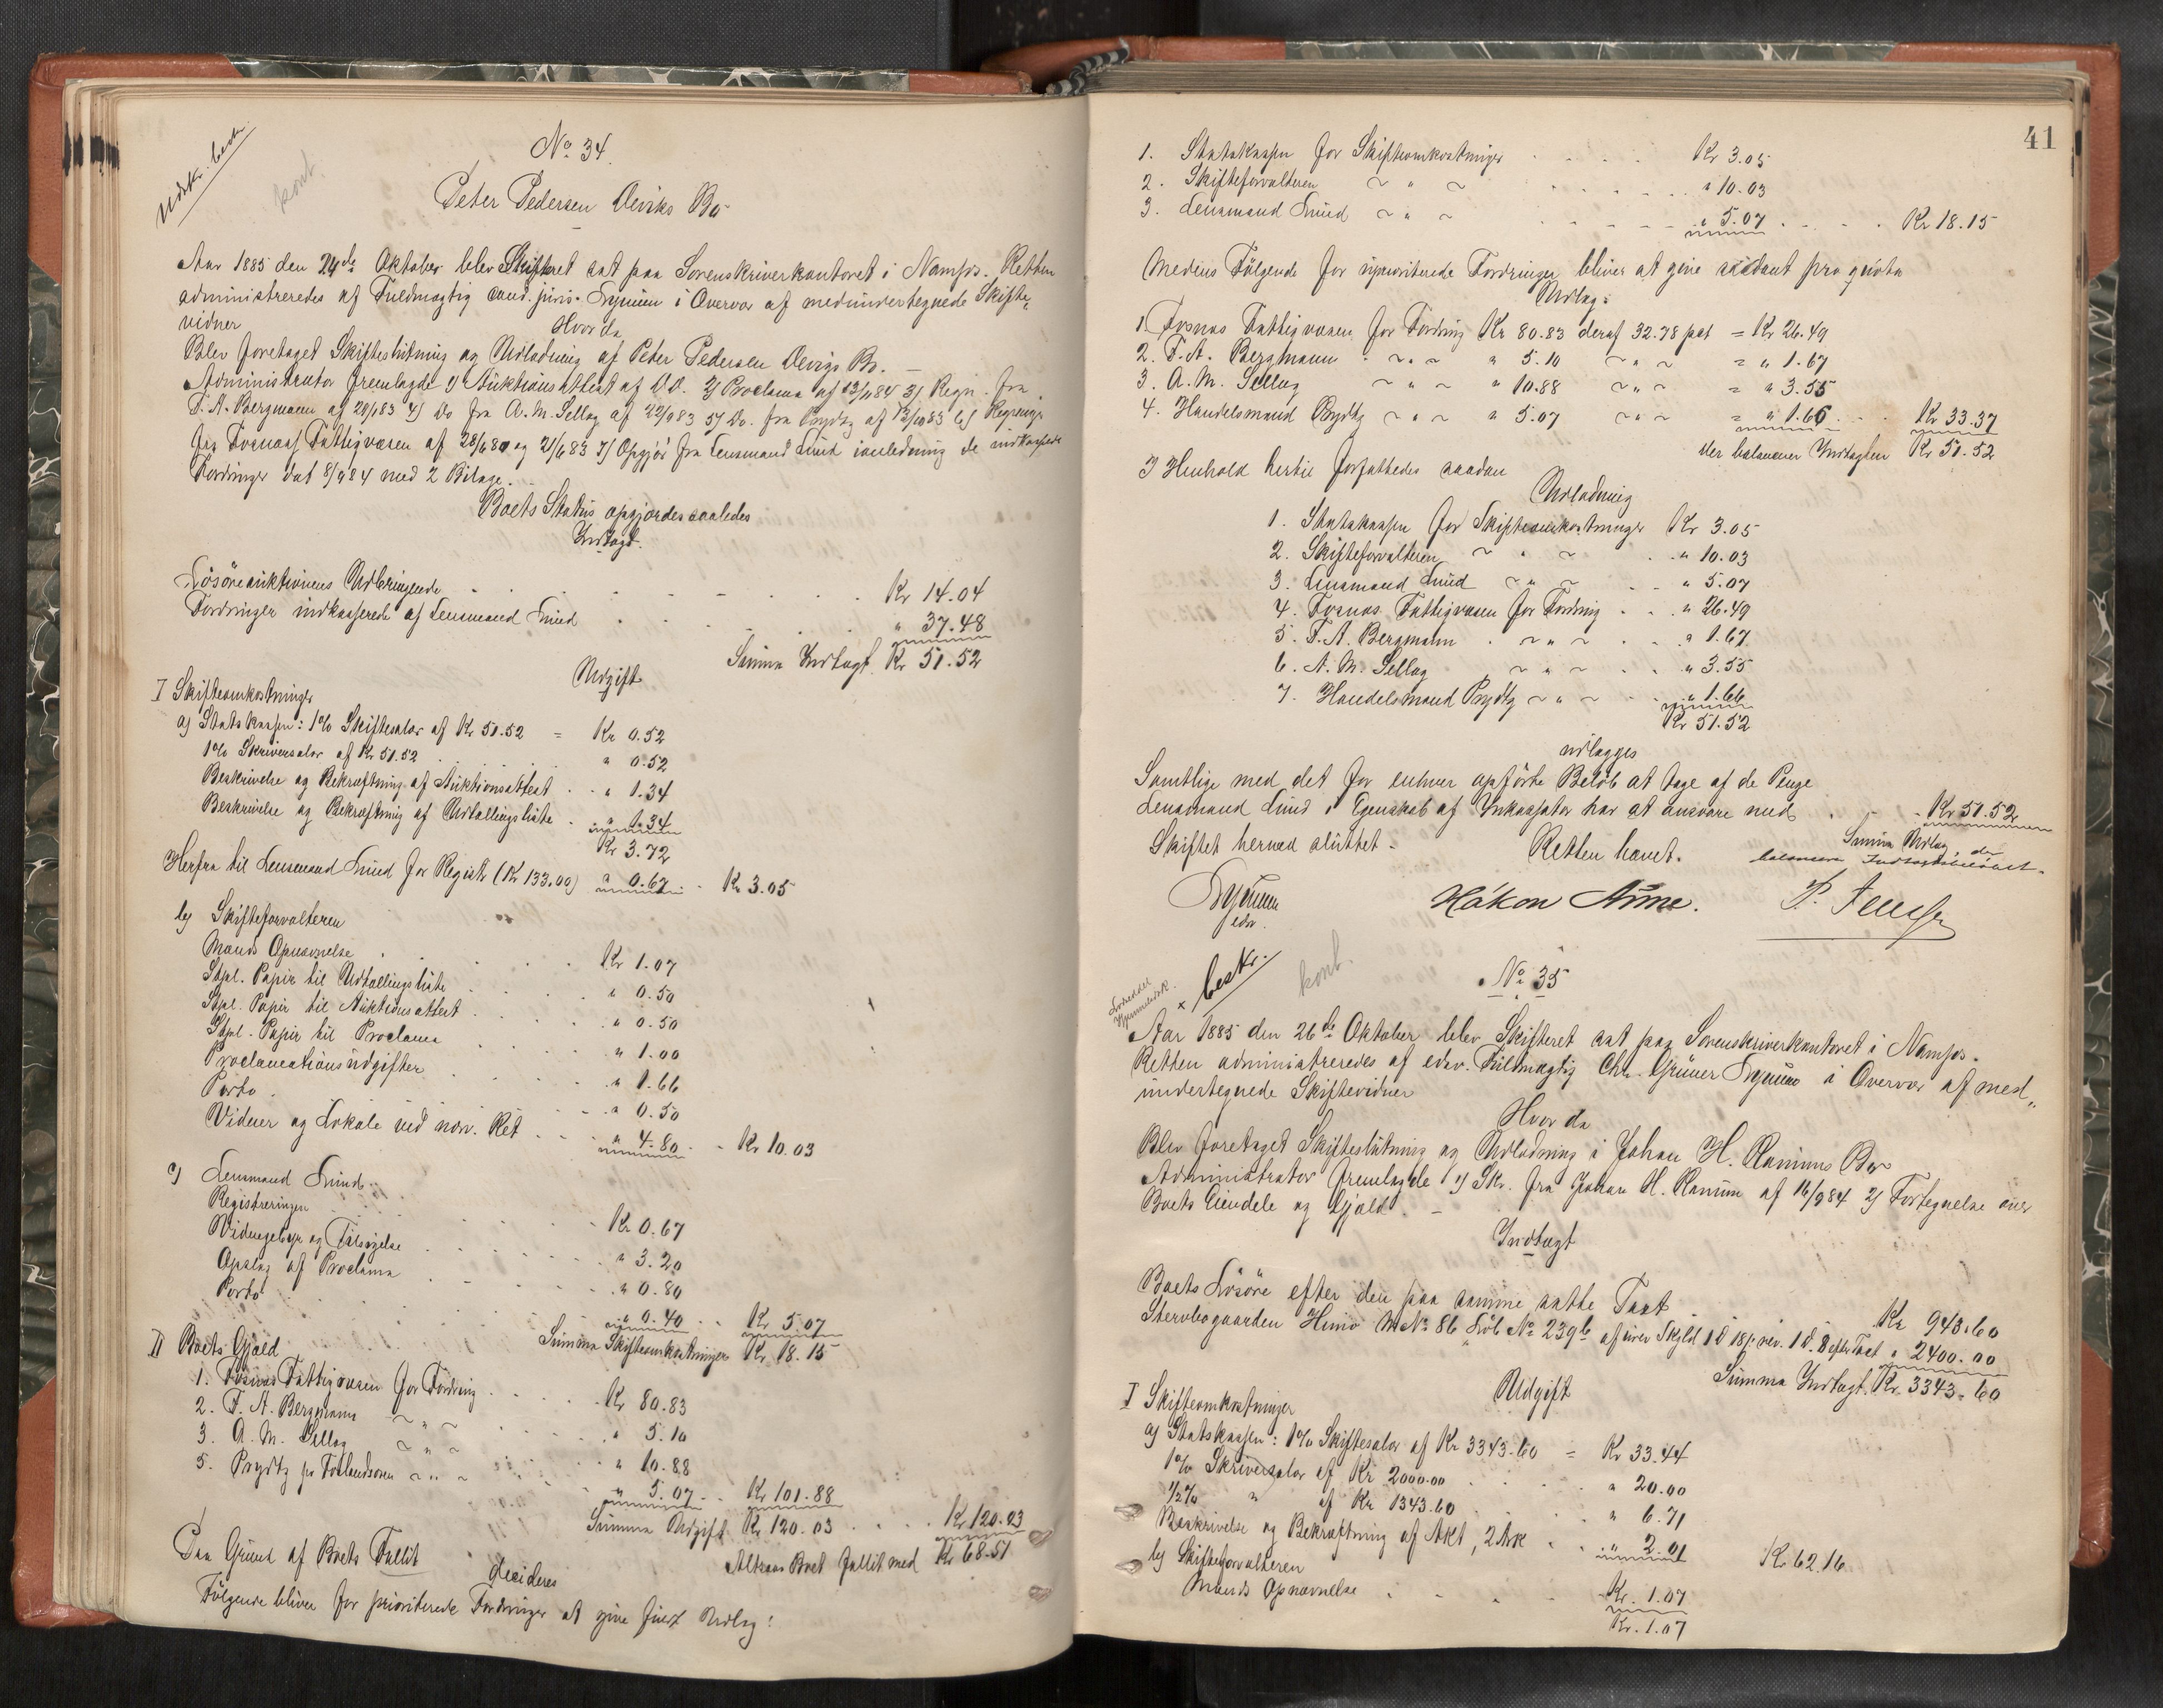 Udskr. besk.
kont.
No 34.
Peter Pedersen Deviks Bo
Aar 1885 den 24de Oktober blev Skifteret sat paa Sorenskriverkontoret i Namsos. Retten
administreredes af Fuldmægtig cand. juris. Lysum i Overvær af medundertegnede Skifte-
vidner
Hvorda
Blev foretaget Skifteslutning og Udlodning af Peter Pedersen Devigs Bo. —
Administrator fremlagde 1) Auktionsattest af D.D. 2) Proclama af 13/11 84 3) Regn. fra
F. A. Bergmann af 20/1 83 4) Do fra A. M. Sellæg af 22/9 83 5) Do. fra Prydtz af 12/10 83 6) Regninger
fra Fosnæs Fattigvæsen af 28/6 80 og 21/6 83 7) Opgjør fra Lensmand Lund i anledning de indkasserede
Fordringer dat 8/9 84 med 2 Bilage.
Boets Status opgjordes saaledes
Indtægt.
Løsøreauktionens Udbringende Kr 14.04
Fordringer indkasserede af Lensmand Lund " 37.48
Summa Indtægt Kr 51.52
Udgift
I Skifteomkostninger
a) Statskassen: 1% Skiftesalær af Kr 51.52 = Kr 0.52
1% Skriversalær af Kr 51.52 " 0.52
Beskrivelse og Bekræftning af Auktionsattest " 1.34
Beskrivelse og Bekræftning af Udtællingsliste " 1.34
Kr 3.72
Herfra til Lensmand Lund for Registr (Kr 133.00) " 0.67 Kr 3.05
b) Skifteforvalteren
Mænds Opnævnelse Kr 1.07
Stpl. Papir til Udtællingsliste " 0.50
Stpl. Papir til Auktionsattest " 0.50
Stpl. Papir til Proclama " 1.00
Proclamationsudgifter " 1.66
Porto " 0.50
Vidner og Lokale ved nærv. Ret " 4.80 Kr 10.03
c) Lensmand Lund.
Registreringen Kr 0.67
Vidnegebyr og Tilsigelse " 3.20
Opslag af Proclama " 0.80
Porto " 0.40 Kr 5.07
Summa Skifteomkostninger Kr 18.15
II Boets Gjæld
1. Fosnæs Fattigvæsen for Fordring Kr 80.83
2. F. A. Bergmann ~ " ~ " 5.10
3. A. M. Sellæg ~ " ~ " 10.88
5. Prydtz pr ~ " ~ " 5.07 Kr 101.88
Summa Udgift Kr 120.03 Kr 120.03
Altsaa Boet fallit med Kr 68.51
Paa Grund af Boets Fallit
decideres
Følgende bliver for prioriterede Fordringer at give fuldt Udlæg:
41
1. Statskassen for Skifteomkostninger Kr 3.05
2. Skifteforvalteren ~ " ~ " 10.03
3. Lensmand Lund ~ " ~ " 5.07 Kr 18.15
Medens Følgende for uprioriterede Fordringer bliver at give saadant pro qvota
Udlæg:
1. Fosnæs Fattigvæsen for Fordring Kr 80.83 deraf 32.78 pct = Kr 26.49
2. F. A. Bergmann ~ " ~ " 5.10 ~ " ~ = " 1.67
3. A. M. Sellæg ~ " ~ " 10.88 ~ " ~ = " 3.55
4. Handelsmand Prydtz ~ " ~ " 5.07 ~ " ~ = " 1.66 Kr 33.37
der balancerer Indtægten Kr 51.52
I Henhold hertil forfattedes saadan
Udlodning
1. Statskassen for Skifteomkostninger Kr 3.05
2. Skifteforvalteren ~ " ~ " 10.03
3. Lensmand Lund ~ " ~ " 5.07
4. Fosnæs Fattigvæsen for Fordring " 26.49
5. F. A. Bergmann ~ " ~ " 1.67
6. A. M. Sellæg ~ " ~ " 3.55
7. Handelsmand Prydtz ~ " ~ " 1.66
Kr 51.52
udlægges
Samtlige med det for enhver opførte Beløb at tage af de Penge
Lensmand Lund i Egenskab af Inkassator har at ansvare med Kr 51.52
Summa Udlæg, der
balancerer Indtægtsbeløbet.
Skiftet hermed sluttet. Retten hævet.
Lysum
edsv.
Håkon Aune. P. Jenssen
beskr.
kont.
No 35
Aar 1885 den 26de Oktober blev Skifteret sat paa Sorenskriverkontoret i Namsos.
Retten administreredes af edsv. Fuldmægtig Chr. Grüner Lysum i Overvær af med-
undertegnede Skiftevidner
Hvorda
Blev foretaget Skifteslutning og Udlodning i Johan H. Ranums Bo
Administrator fremlagde 1) Skr. fra Johan H. Ranum af 16/9 84 2) Fortegnelse over
Boets Eiendele og Gjæld. —
Indtægt
Boets Løsøre efter den paa samme satte Taxt Kr 943.60
Stervbogaarden Himo M No 86 Løb No 239b af sver Skyld 1 D 18 rev. 1 D. 8 efter Taxt " 2400.00
Summa Indtægt Kr. 3343.60
Udgift
I Skifteomkostninger
a) Statskassen: 1% Skiftesalær af Kr 3343.60 = Kr 33.44
1% Skriversalær af Kr 2000.00 " 20.00
1/2% " af Kr 1343.60 " 6.71
Beskrivelse og Bekræftning af Akt, 2 Ark " 2.01 Kr 62.16
b) Skifteforvalteren
Mænds Opnævnelse Kr. 1.07
Kr. 1.07